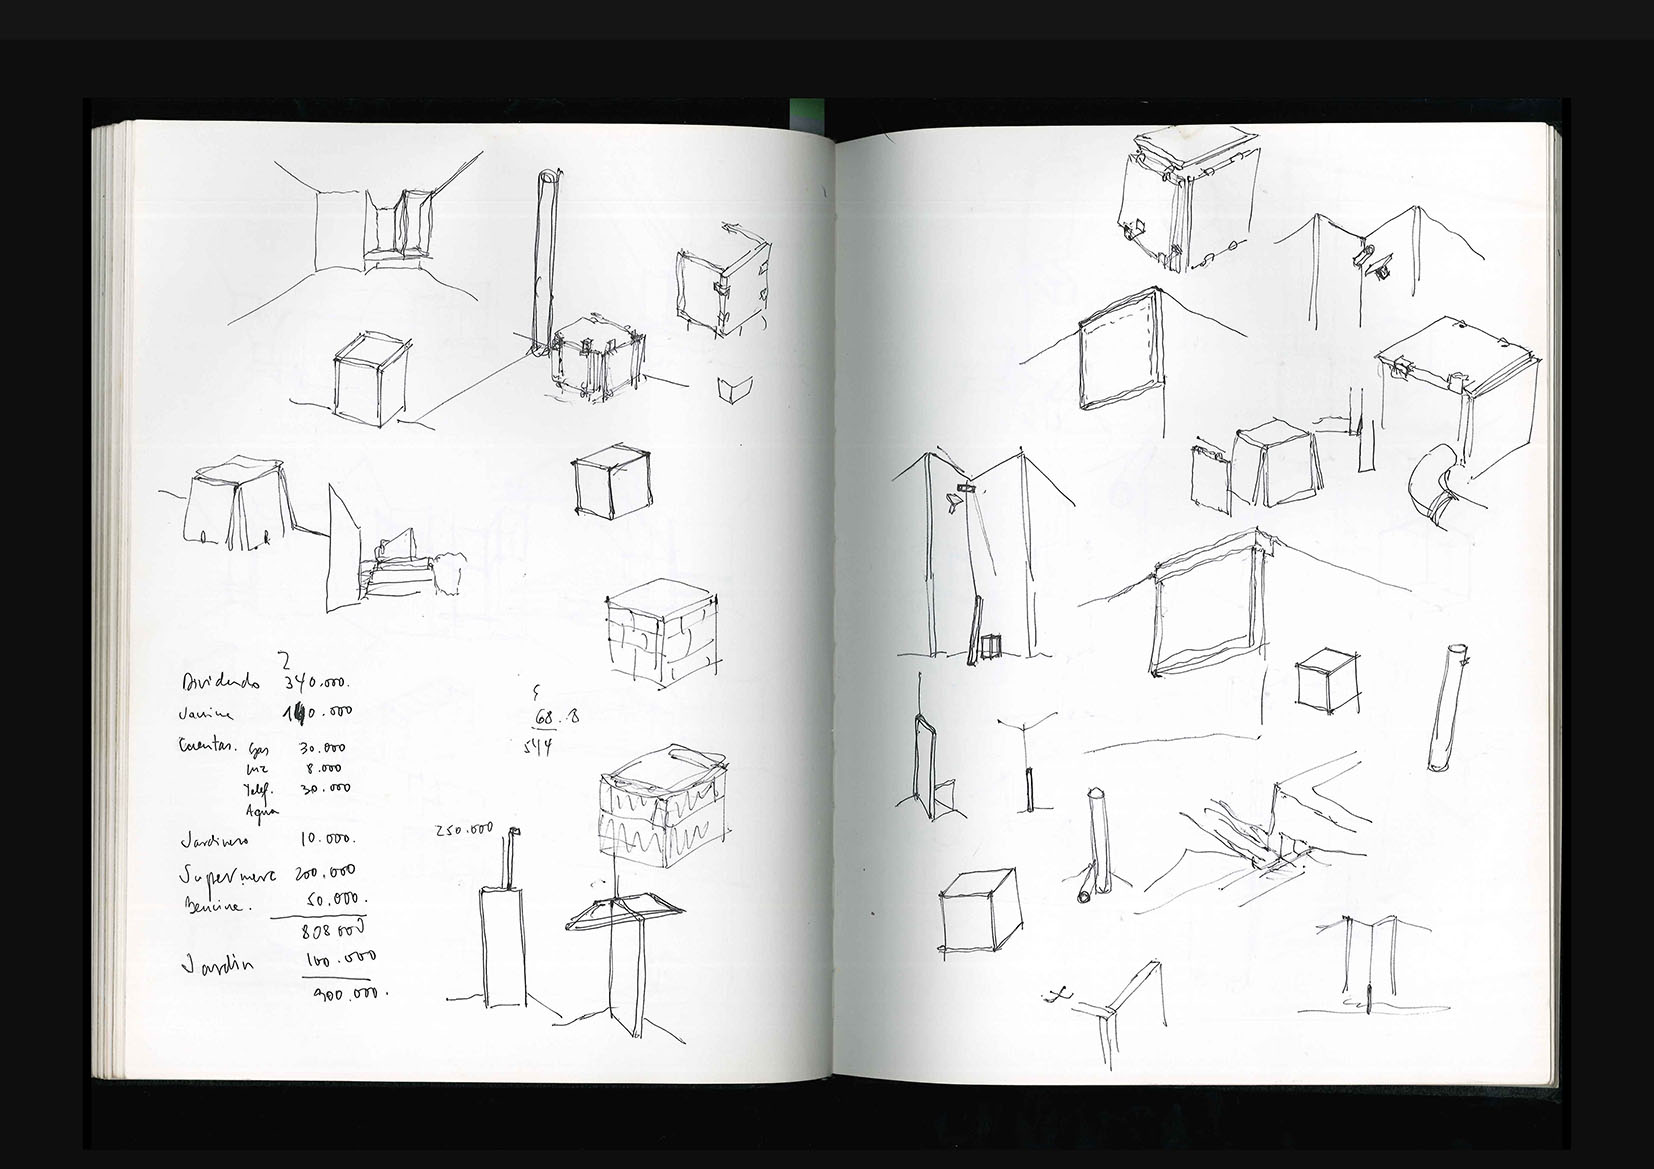 2
Dividendo 340.000.
140.000
Cuentas. Gas 30.000
luz 8.000
Telef. 30.000
Agua
Jardinero 10.000.
Supermerc 200.000
Bencina. 50.000.
808 000
Jardin 100.000
900.000.
68..8
544
250.000